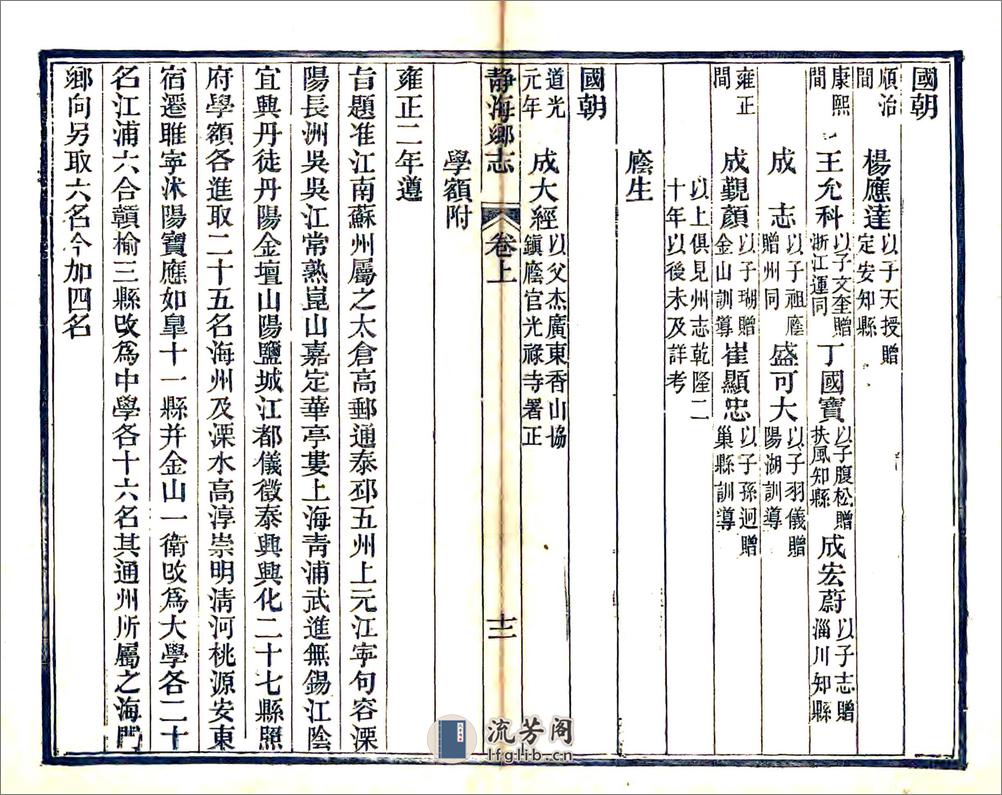 國朝
順治間 楊應達 以子天授贈定安知縣
康熙間 王允科 以子文奎贈浙江運同 丁國寶 以子腹松贈扶風知縣 成宏蔚 以子志贈淄川知縣
成志 以子祖廕贈州同 盛可大 以子羽儀贈陽湖訓導
雍正間 成覲顏 以子瑚贈金山訓導 崔顯忠 以子孫迥贈巢縣訓導
以上俱見州志乾隆二十年以後未及詳考
廕生
國朝
道光元年 成大經 以父杰廣東香山協鎮廕官光祿寺署正
靜海鄉志 卷上 十二
學額附
雍正二年遵
旨題准江南蘇州屬之太倉高郵通泰邳五州上元江寍句容溧
陽長洲吳吳江常熟崑山嘉定華亭婁上海青浦武進無錫江陰
宜興丹徒丹陽金壇山陽鹽城江都儀徵泰興興化二十七縣照
府學額各進取二十五名海州及溧水高淳崇明清河桃源安東
宿遷睢寍沭陽寶應如皐十一縣并金山一衛改爲大學各二十
名江浦六合贛榆三縣改爲中學各十六名其通州所屬之海門
鄉向另取六名今加四名
流芳阁
lfglib.cn